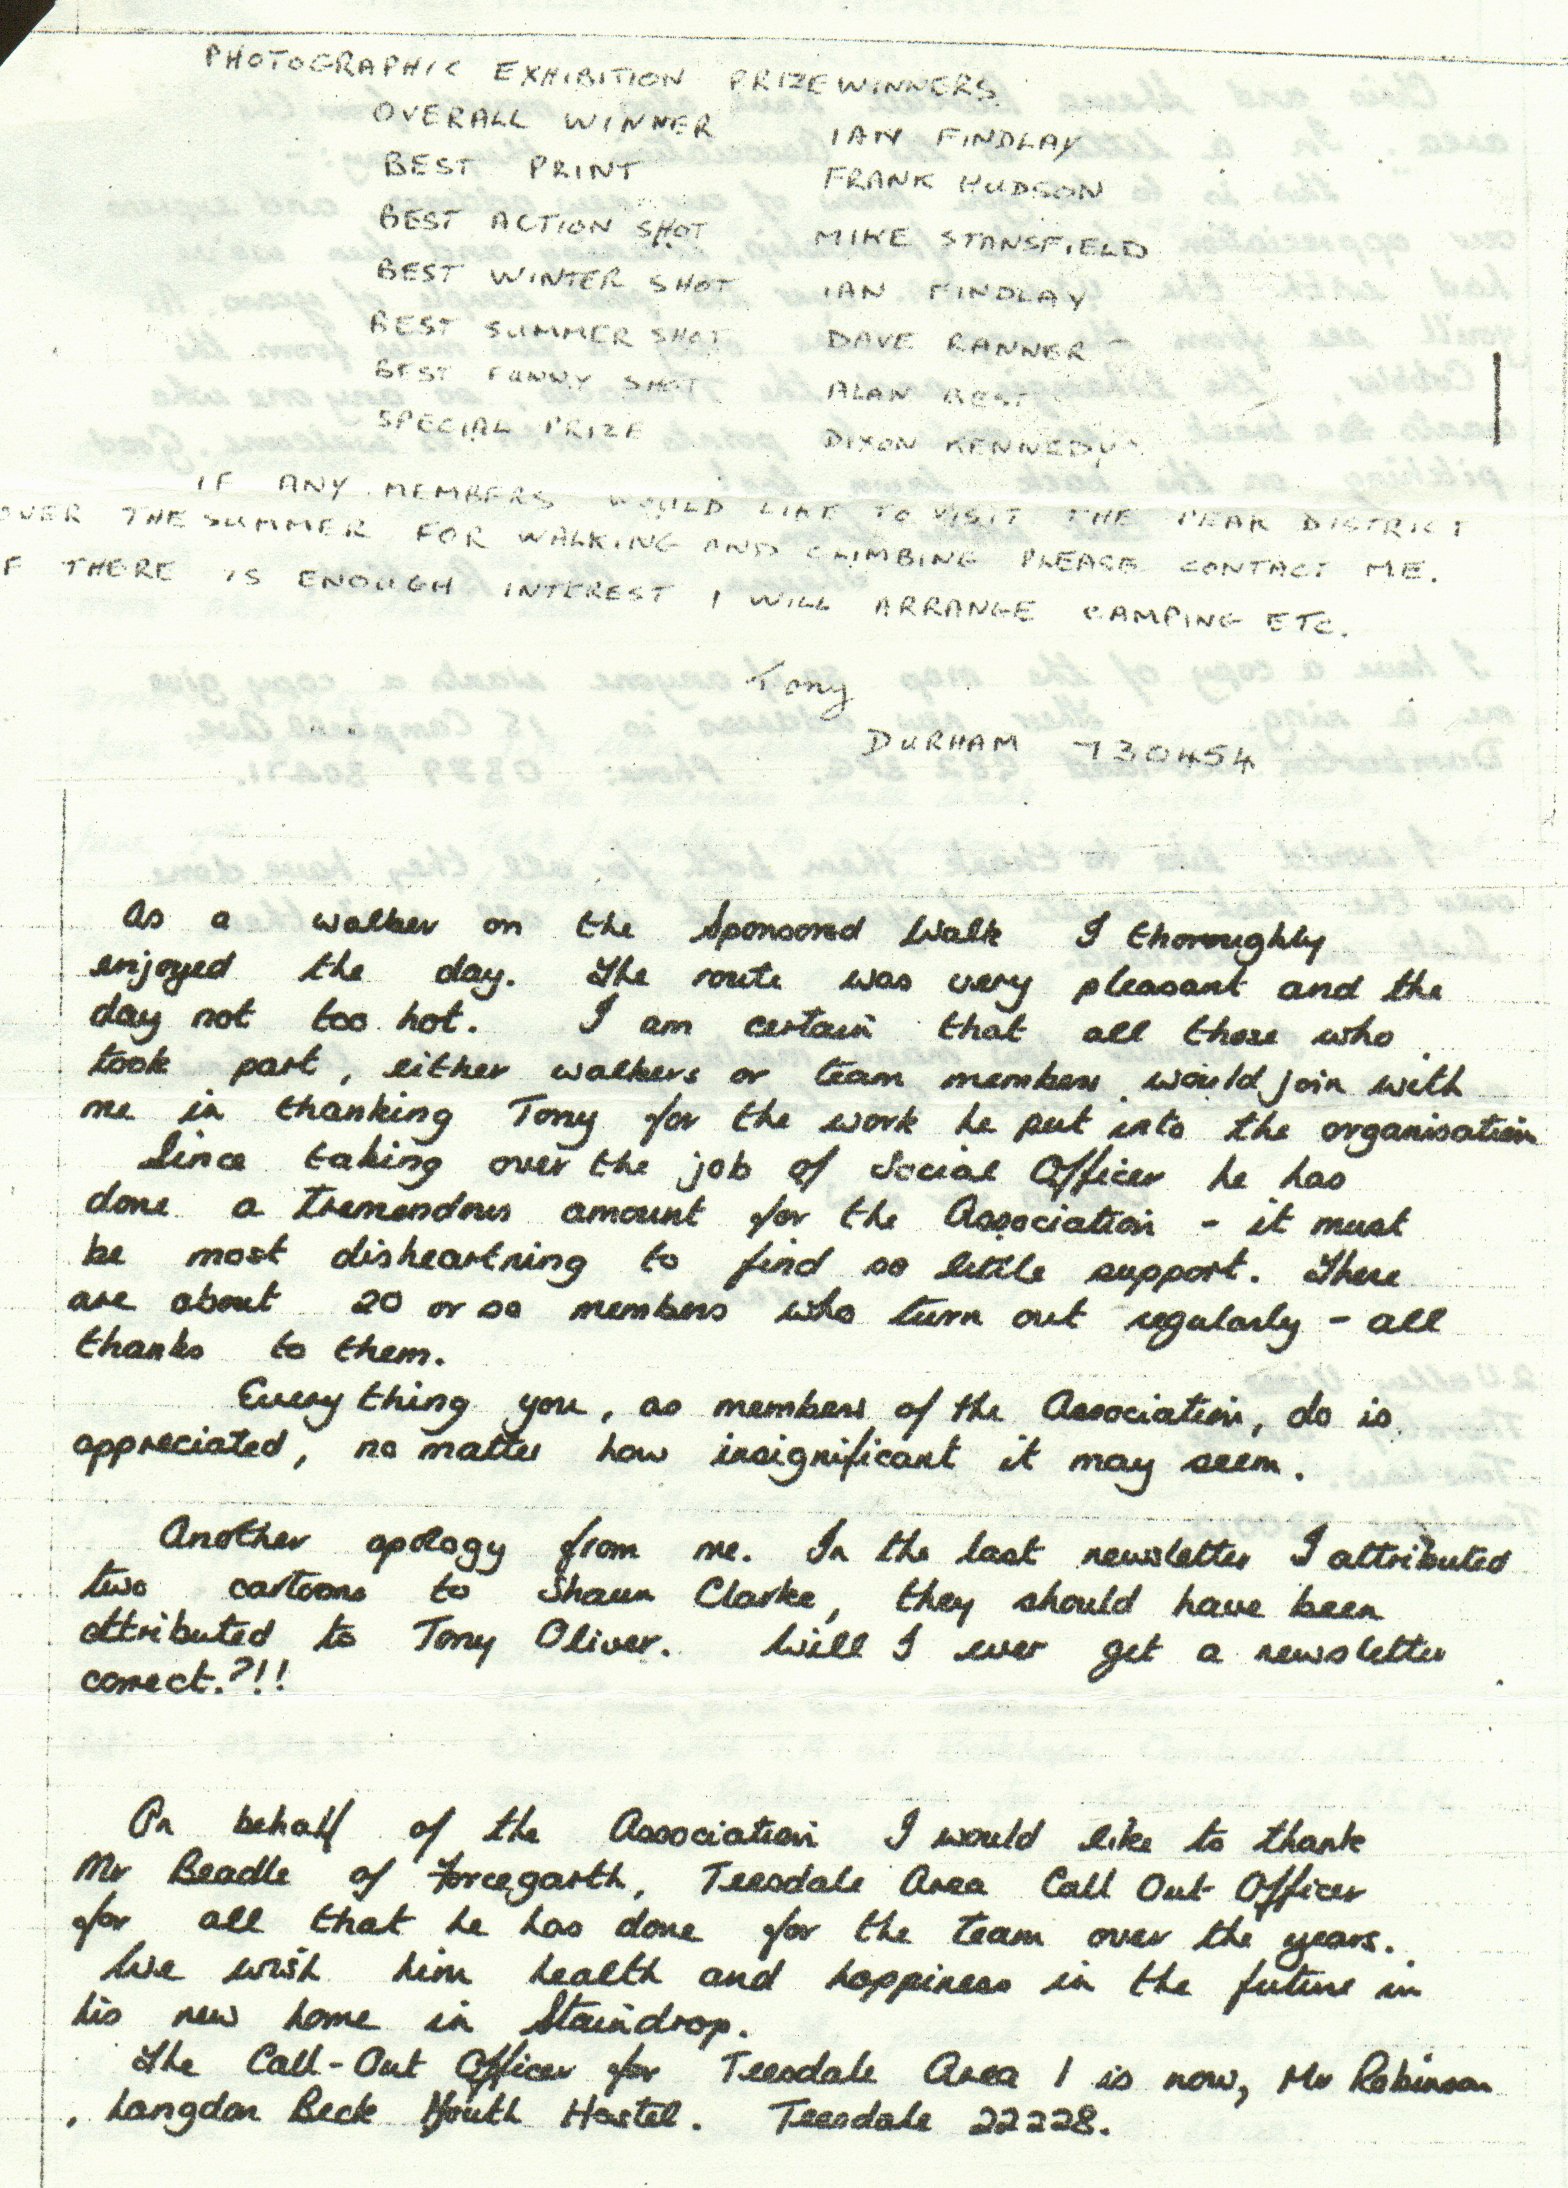 PHOTOGRAPHIC EXHIBITION PRIZEWINNERS
OVERALL WINNER IAN FINDLAY
BEST PRINT FRANK HUDSON
BEST ACTION SHOT MIKE STANSFIELD
BEST WINTER SHOT IAN FINDLAY
BEST SUMMER SHOT DAVE RANNER
BEST FUNNY SHOT ALAN BEST
SPECIAL PRIZE DIXON KENNEDY
IF ANY MEMBERS WOULD LIKE TO VISIT THE PEAK DISTRICT
OVER THE SUMMER FOR WALKING AND CLIMBING PLEASE CONTACT ME.
F THERE IS ENOUGH INTEREST I WILL ARRANGE CAMPING ETC.
Tony
DURHAM 730454
As a walker on the Sponsored Walk I thoroughly
enjoyed the day. The route was very pleasant and the
day not too hot. I am certain that all those who
took part, either walkers or team members would join with
me in thanking Tony for the work he put into the organisation
Since taking over the job of Social Officer he has
done a tremendous amount for the Association - it must
be most disheartning to find so little support. There
are about 20 or so members who turn out regularly - all
thanks to them.
Everything you, as members of the Association, do is
appreciated, no matter how insignificant it may seem.
Another apology from me. In the last newsletter I attributed
two cartoons to Shaun Clarke, they should have been
attributed to Tony Oliver. Will I ever get a newsletter
correct.?!!
On behalf of the Association I would like to thank
Mr Beadle of Forcegarth, Teesdale Area Call Out Officer
for all that he has done for the team over the years.
We wish him health and happiness in the future in
his new home in Staindrop.
The Call-Out Officer for Teesdale Area 1 is now, Mr Robinson
, Langdon Beck Youth Hostel. Teesdale 22228.